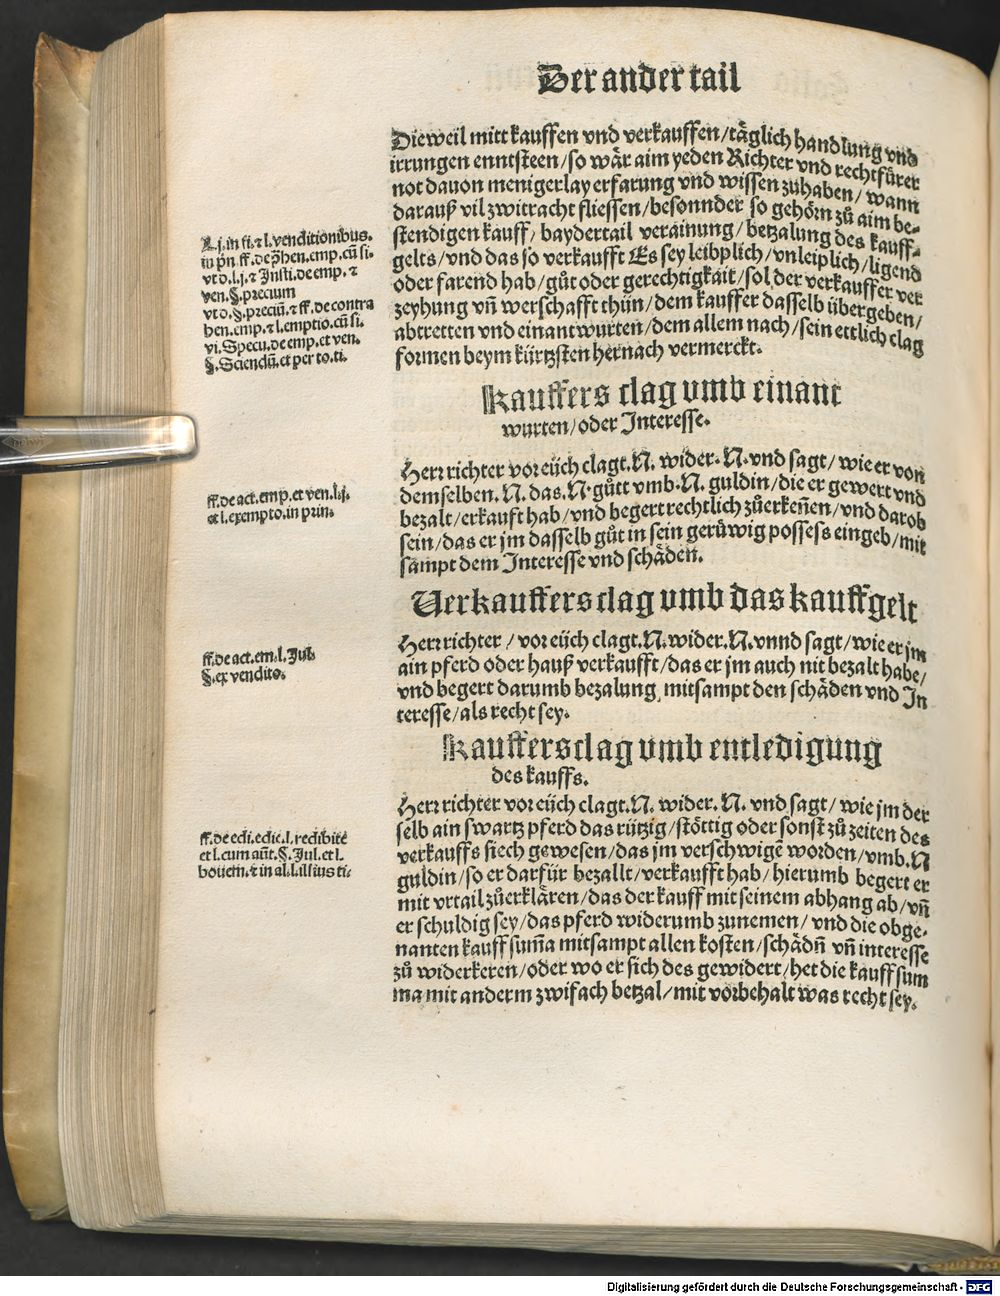 Der ander tail
Dieweil mitt kauffen vnd verkauffen/täglich handlung vnd
irrungen enntsteen/so wär aim yeden Richter vnd rechtfůrer
not dauon menigerlay erfarung vnd wissen zuhaben/wann
darauß vil zwitracht fliessen/besonnder so gehörn zů aim be-
stendigen kauff/baydertail verainung/betzalung des kauff-
gelts/vnd das so verkaufft Es sey leibplich/vnleiplich/ligend
oder farend hab/gůt oder gerechtigkait/sol der verkauffer ver
zeyhung vñ werschafft thůn/dem kauffer dasselb übergeben/
abtretten vnd einantwurten/dem allem nach/sein ettlich clag
formen beym kürtzsten hernach vermerckt.
A j. in fi. ⁊ l. venditionibus.
in pn̄ ff. de p̄hen. emp. cū si.
vt d. l. j. ⁊ Insti. de emp. ⁊
ven. §. precium
vt d. §. preciū. ⁊ ff. de contra
hen. emp. ⁊ l. emptio. cū si.
vi. Specu. de emp. et ven.
§. Sciendū. et per to. ti.
Kauffers clag vmb einant
wurten/oder Interesse.
Herr richter vor eüch clagt. N. wider. N. vnd sagt/wie er von
demselben. N. das. N. gůtt vmb. N. guldin/die er gewert vnd
bezalt/erkauft hab/vnd begert rechtlich zůerkeñen/vnd darob
sein/das er jm dasselb gůt in sein gerüwig possess eingeb/mit
sampt dem Interesse vnd schäden.
ff. de act. emp. et ven. l. j.
et l. exempto. in prin.
Verkauffers clag vmb das kauffgelt
Herr richter/vor eüch clagt. N. wider. N. vnnd sagt/wie er jm
ain pferd oder hauß verkaufft/das er jm auch nit bezalt habe/
vnd begert darumb bezalung mitsampt den schäden vnd In
teresse/als recht sey.
ff. de act. em. l. Jul.
§. ex vendito.
Kauffers clag vmb entledigung
des kauffs.
Herr richter vor eüch clagt. N. wider. N. vnd sagt/wie jm der
selb ain swartz pferd das rützig/stöttig oder sonst zů zeiten des
verkauffs siech gewesen/das jm verschwigē worden/vmb. N
guldin/so er darfür bezallt/verkaufft hab/hierumb begert er
mit vrtail zůerklären/das der kauff mit seinem abhang ab/vñ
er schuldig sey/das pferd widerumb zunemen/vnd die obge-
nanten kauff sum̄a mitsampt allen kosten/schädñ vñ interesse
zů widerkeren/oder wo er sich des gewidert/het die kauff sum
ma mit anderm zwifach betzal/mit vorbehalt was recht sey.
ff. de edi. edic. l. redibitē
et l. cum aūt. §. Jul. et l.
bouem. ⁊ in al. l. illius ti.
Digitalisierung gefördert durch die Deutsche Forschungsgemeinschaft - DFG